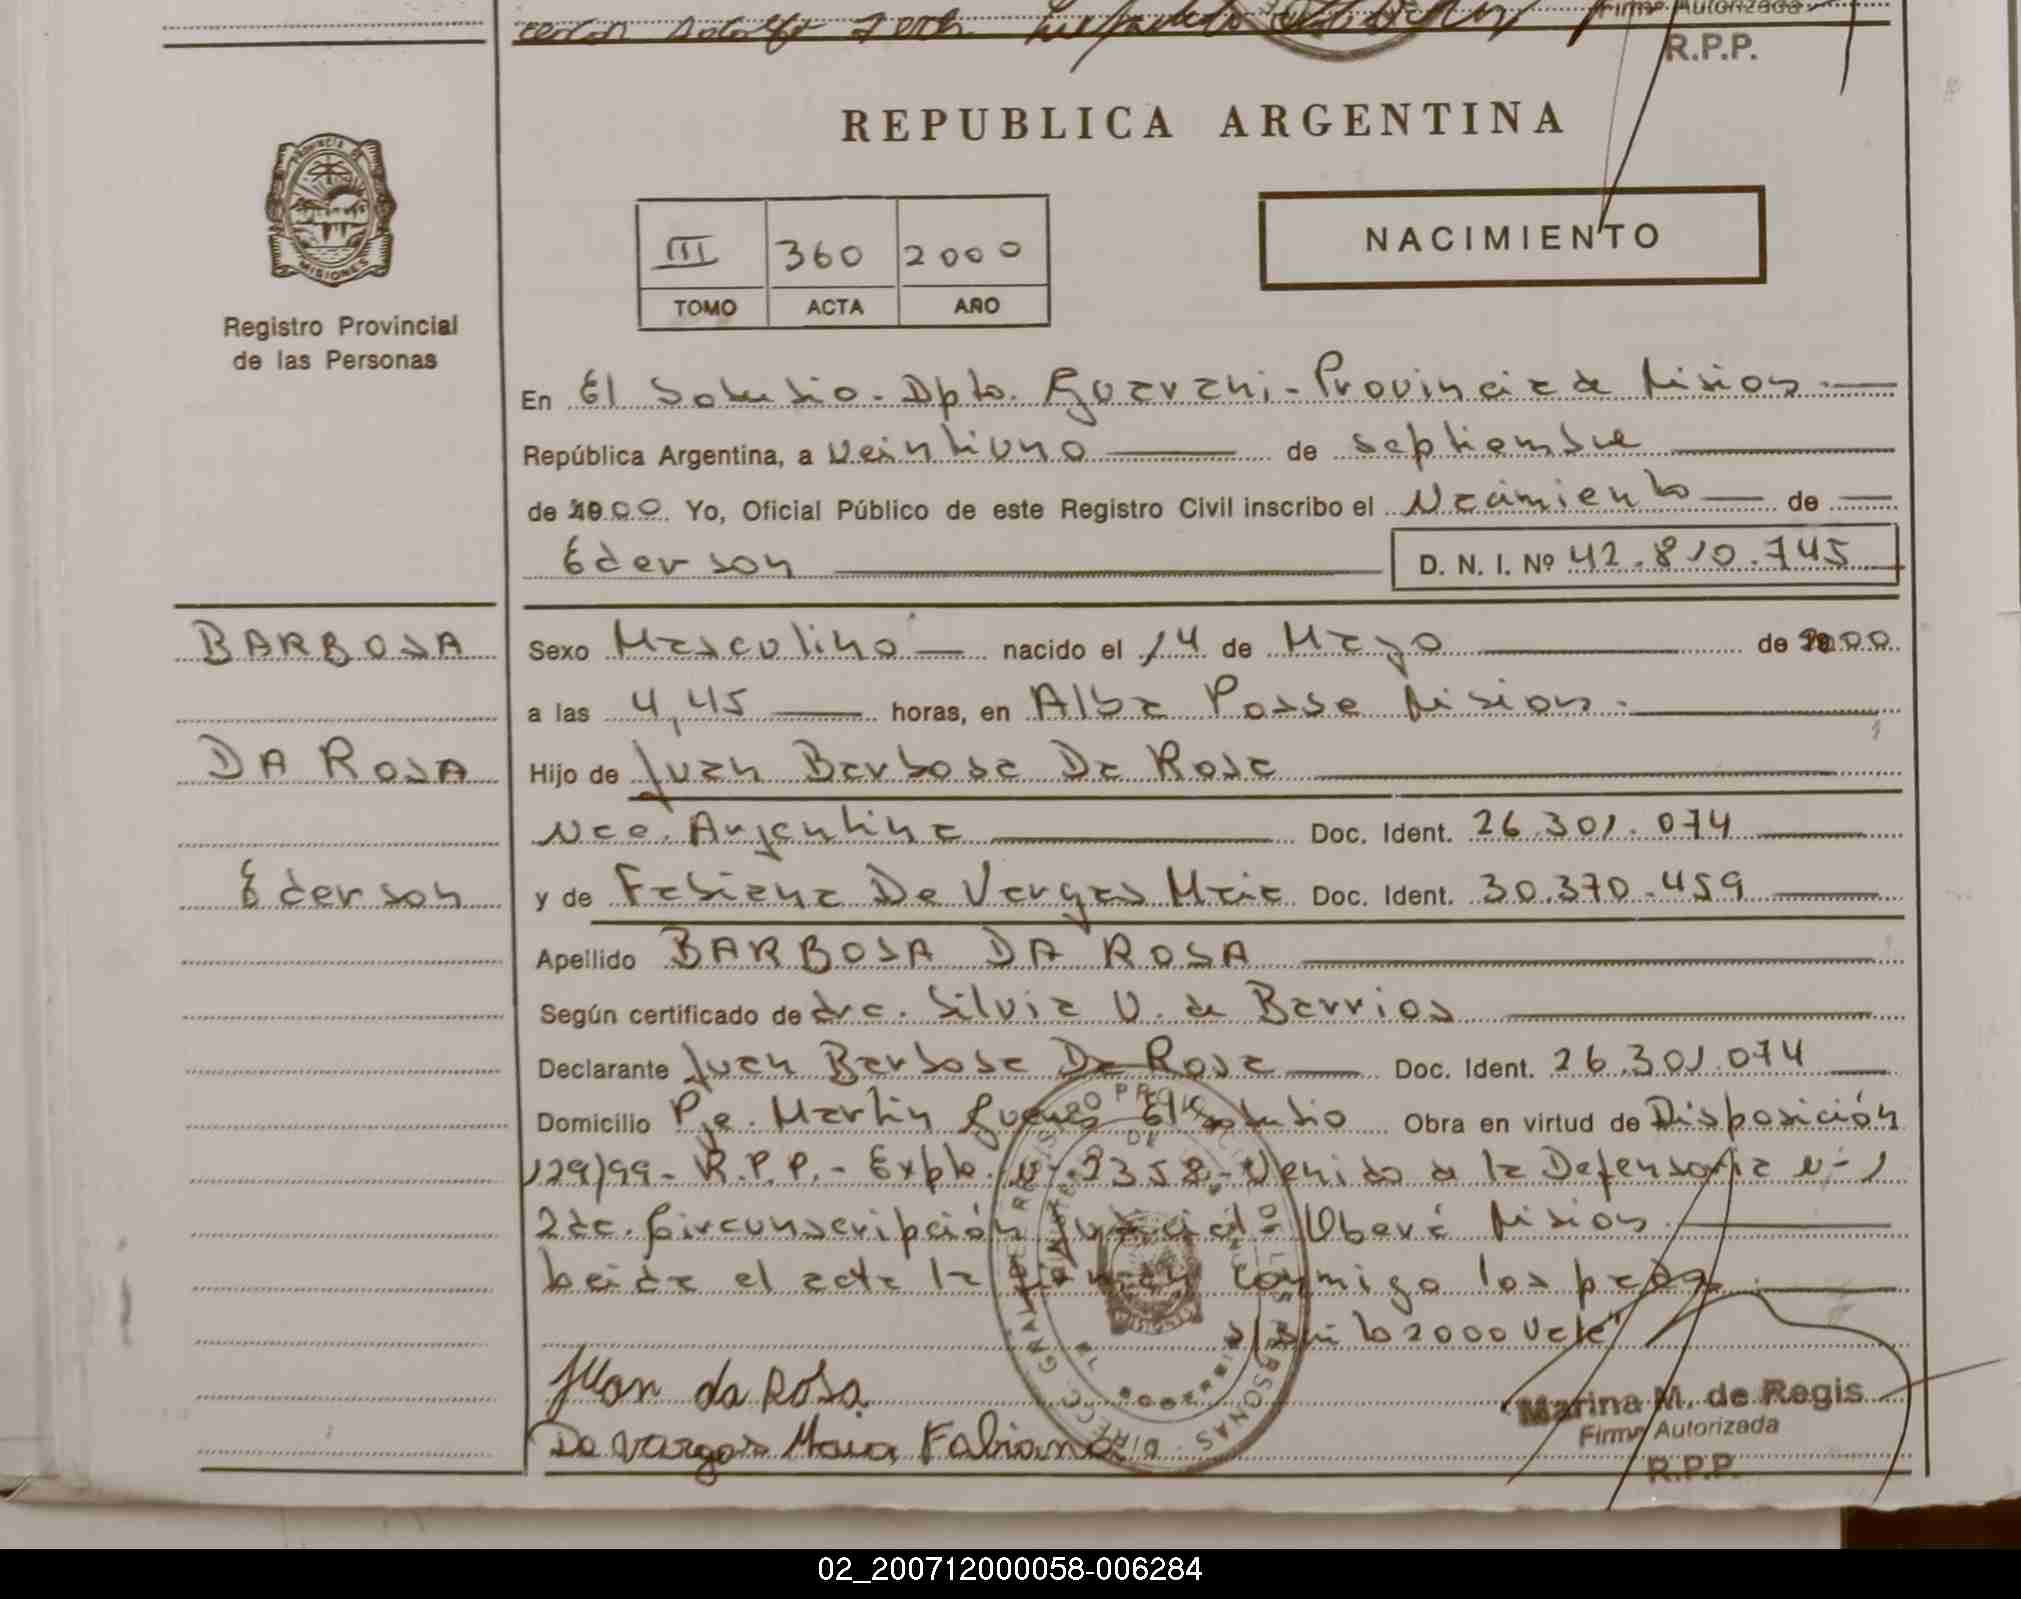 Firma Autorizada
R.P.P.
PROVINCIA DE
MISIONES
Registro Provincial
de las Personas
REPUBLICA ARGENTINA
III 360 2000
TOMO ACTA AÑO
NACIMIENTO
En El Soberbio - Dpto. Guarani - Provincia de Misiones
República Argentina, a veintiuno de septiembre
de 2000 Yo, Oficial Público de este Registro Civil inscribo el Nacimiento de
Ederson D. N. I. Nº 42.810.745
BARBOSA
DA ROSA
Ederson
Sexo Masculino nacido el 14 de Mayo de 2000
a las 4,45 horas, en Alba Posse Misiones.
Hijo de Juan Barbosa Da Rosa
Nac. Argentina Doc. Ident. 26.301.074
y de Fabiana De Vargas Maia Doc. Ident. 30.370.459
Apellido BARBOSA DA ROSA
Según certificado de dra. Silvia V. de Barrios
Declarante Juan Barbosa Da Rosa Doc. Ident. 26.301.074
Domicilio Pje. Martin Guemes El Soberbio Obra en virtud de Disposición
129/99 - R.P.P. - Expte. Nº 3358 - Venido de la Defensoria Nº 1
2da. Circunscripción Judicial Oberá Misiones.
Leida el acta la firman conmigo los padres.
2000 Vale"
Juan da Rosa
De vargas Maia Fabiana
Marina M. de Regis
Firma Autorizada
R.P.P.
02_200712000058-006284